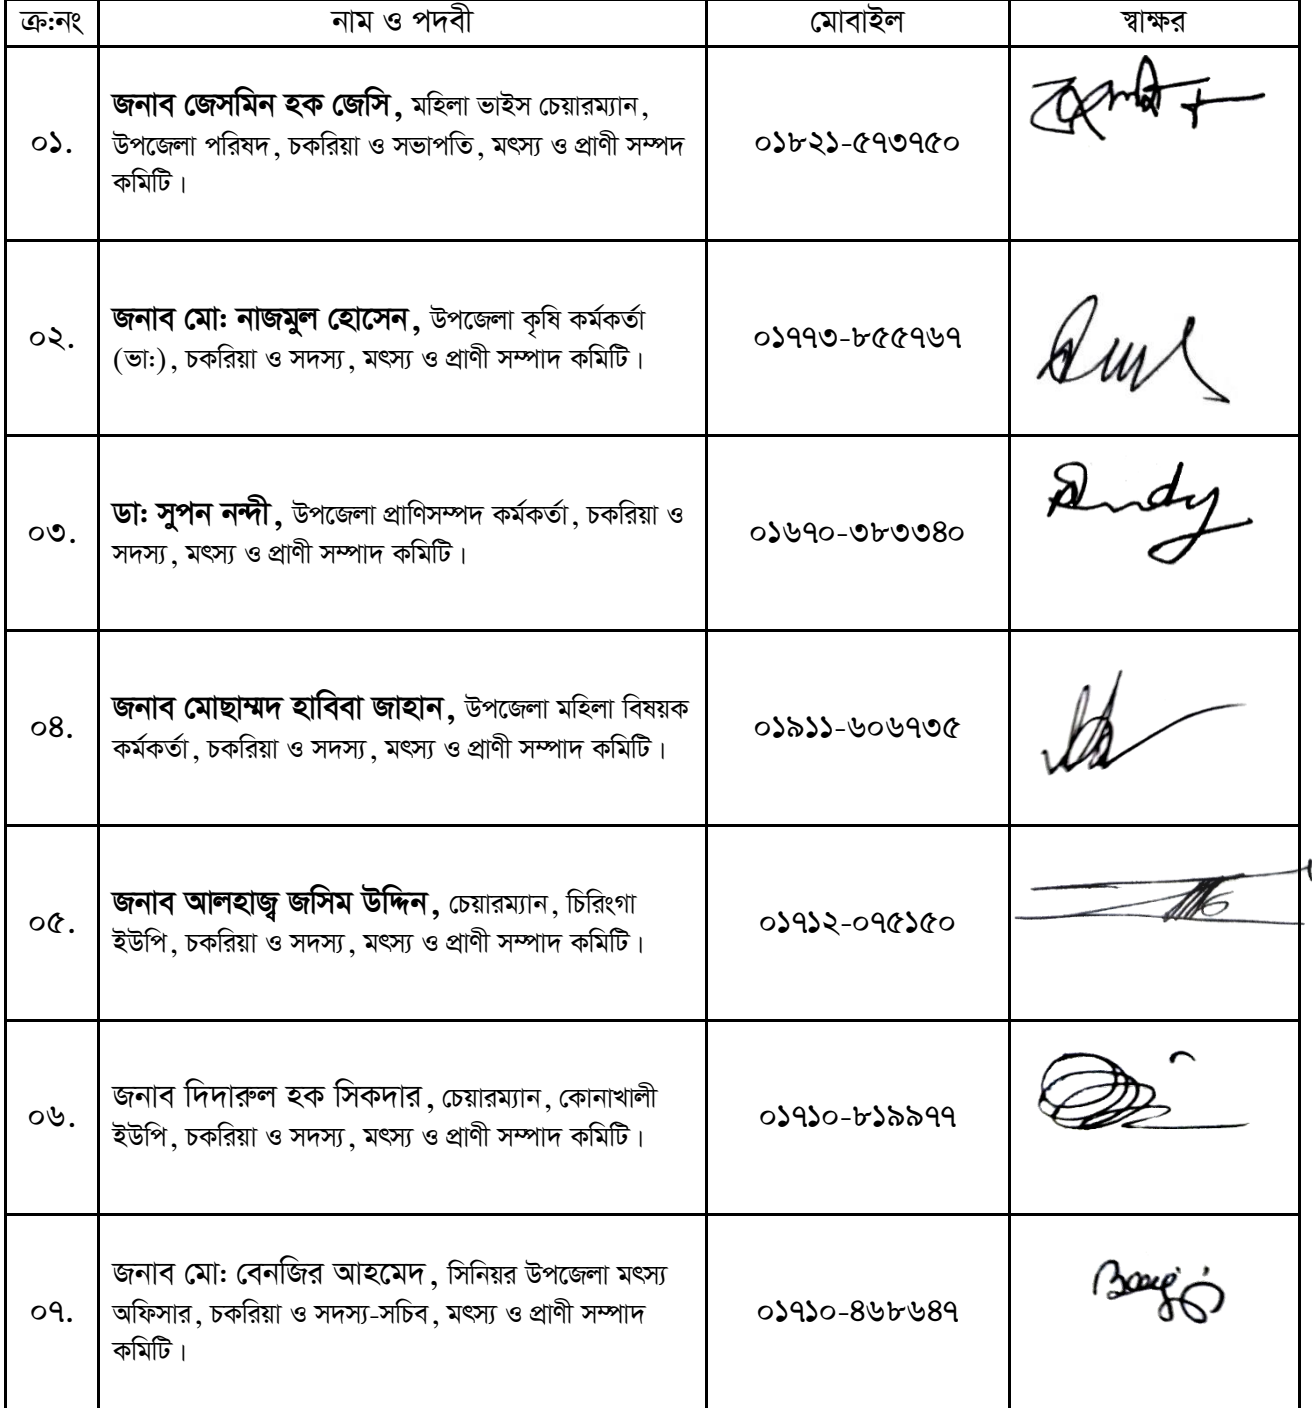 ক্র:নং নাম ও পদবী মোবাইল স্বাক্ষর
০১. জনাব জেসমিন হক জেসি, মহিলা ভাইস চেয়ারম্যান, উপজেলা পরিষদ, চকরিয়া ও সভাপতি, মৎস্য ও প্রাণী সম্পদ কমিটি। ০১৮২১-৫৭৩৭৫০
০২. জনাব মো: নাজমুল হোসেন, উপজেলা কৃষি কর্মকর্তা (ভা:), চকরিয়া ও সদস্য, মৎস্য ও প্রাণী সম্পাদ কমিটি। ০১৭৭৩-৮৫৫৭৬৭
০৩. ডা: সুপন নন্দী, উপজেলা প্রাণিসম্পদ কর্মকর্তা, চকরিয়া ও সদস্য, মৎস্য ও প্রাণী সম্পাদ কমিটি। ০১৬৭০-৩৮৩৩৪০
০৪. জনাব মোছাম্মদ হাবিবা জাহান, উপজেলা মহিলা বিষয়ক কর্মকর্তা, চকরিয়া ও সদস্য, মৎস্য ও প্রাণী সম্পাদ কমিটি। ০১৯১১-৬০৬৭৩৫
০৫. জনাব আলহাজ্ব জসিম উদ্দিন, চেয়ারম্যান, চিরিংগা ইউপি, চকরিয়া ও সদস্য, মৎস্য ও প্রাণী সম্পাদ কমিটি। ০১৭১২-০৭৫১৫০
০৬. জনাব দিদারুল হক সিকদার, চেয়ারম্যান, কোনাখালী ইউপি, চকরিয়া ও সদস্য, মৎস্য ও প্রাণী সম্পাদ কমিটি। ০১৭১০-৮১৯৯৭৭
০৭. জনাব মো: বেনজির আহমেদ, সিনিয়র উপজেলা মৎস্য অফিসার, চকরিয়া ও সদস্য-সচিব, মৎস্য ও প্রাণী সম্পাদ কমিটি। ০১৭১০-৪৬৮৬৪৭